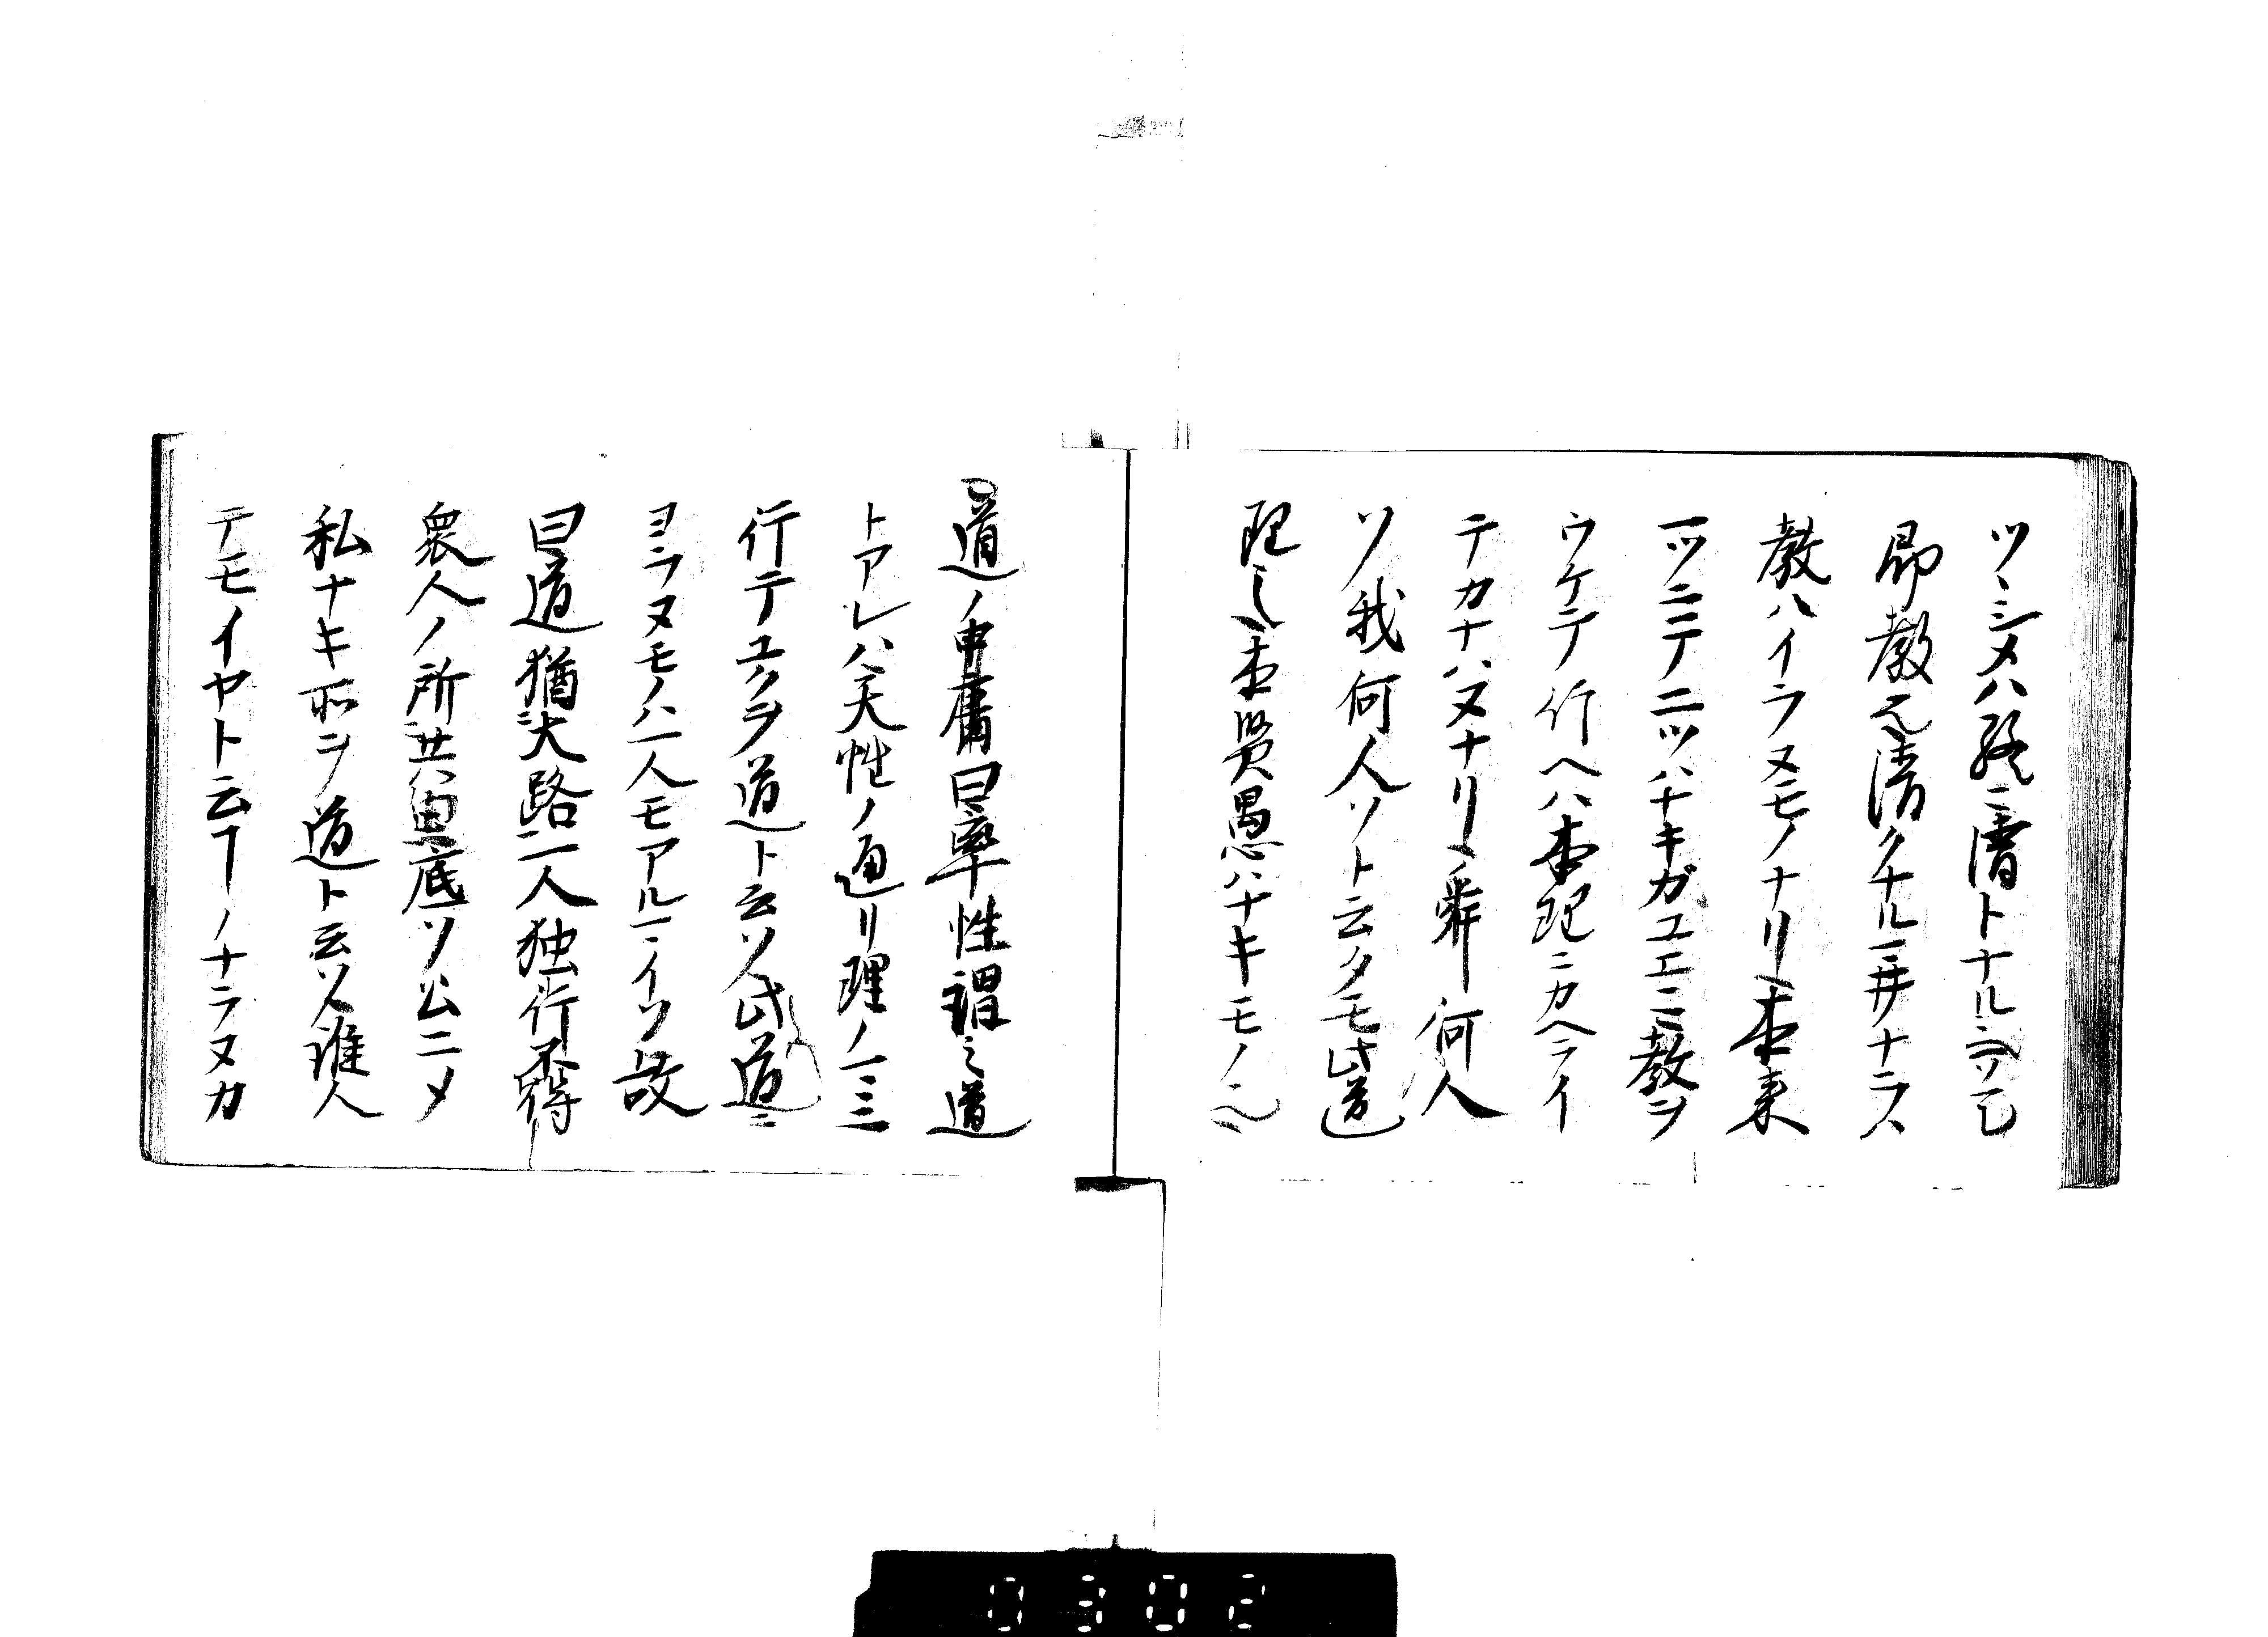 ツヽシメハ終ニ清トナルヿソ
即教元清クナルニ井ナラス
教ハイラヌモノナリ本来
一ツニテ二ツハナキガユエニ教ヲ
ウケテ行ヘハ本理ニカヘライ
テカナハヌナリ舜何人
ソ我何人ソト云タモ此道
理也本賢愚ハナキモノ也
道ノ中庸曰率性謂之道
トアレハ天性ノ通リ理ノ一ミニ
行テユクヲ道ト云ソ此道ニ
ヨラヌモノハ一人モアルマイソ故
曰道猶大路一人独行不得
衆人ノ所共由底ソ公ニメ
私ナキ所ヲ道ト云ソ誰人
テモイヤト云ヿノナラヌカ
0302